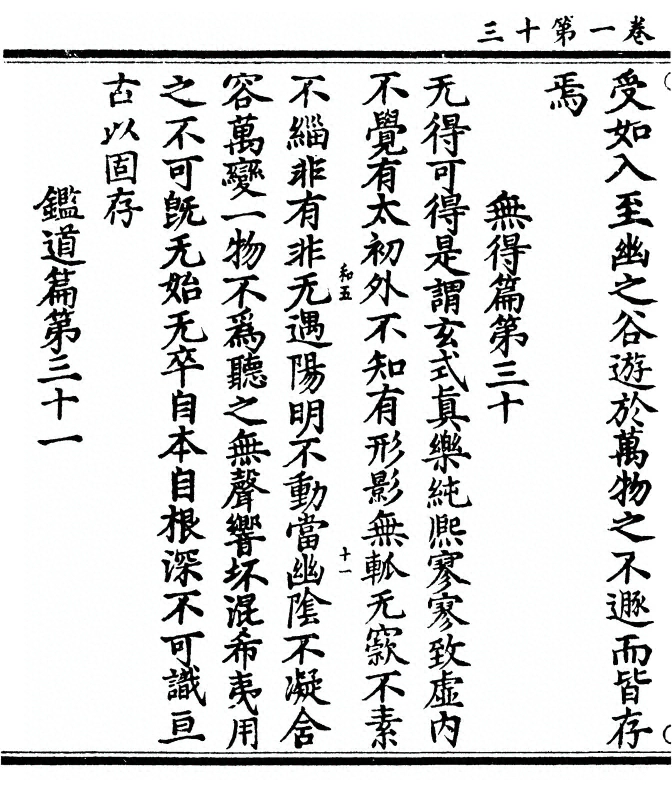 卷一第十三
受如入至幽之谷遊於萬物之不遯而皆存
焉
無得篇第三十
无得可得是謂玄式眞樂純熈寥寥致虛内
不覺有太初外不知有形影無軱无窾不素
和五
十一
不緇非有非无遇陽明不動當幽陰不凝含
容萬變一物不爲聽之無聲響坏混希夷用
之不可旣无始无卒自本自根深不可識亘
古以固存
鑑道篇第三十一